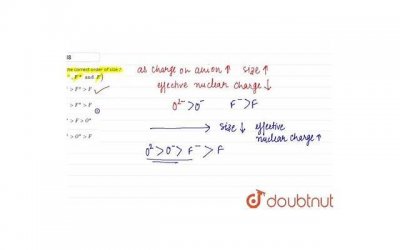 he correct order of size ?
, F⁻ and F)
> F⁻ > F
> F⁻ > F
> F > O⁻
> O⁻ > F
as charge on anion ↑ size ↑
effective nuclear charge ↓
O²⁻ > O⁻ F⁻ > F
→ size ↓ effective nuclear charge ↑
O² > O⁻ > F⁻ > F
doubtnut